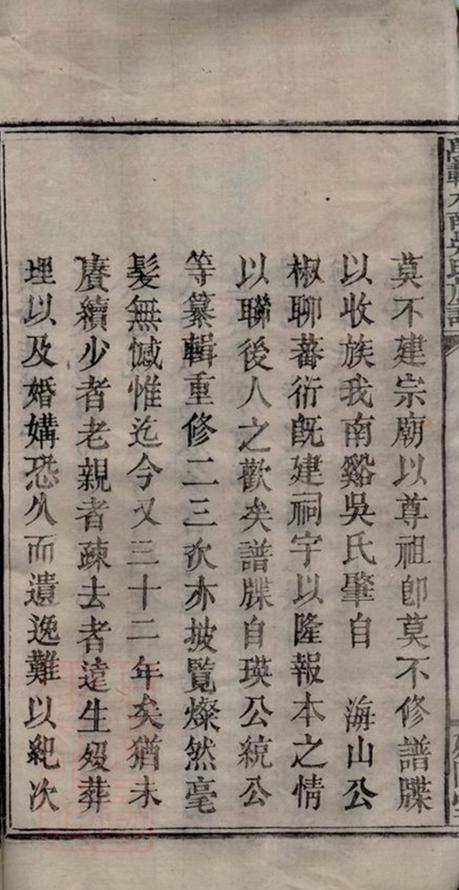 莫不建宗廟以尊祖卽莫不修譜牒
以收族我南谿吳氏肇自　海山公
椒聊蕃衍既建祠宇以隆報本之情
以聯後人之歡矣譜牒自瑛公統公
等纂輯重修二三次亦披覽燦然毫
髮無憾惟迄今又三十二年矣猶未
賡續少者老親者疎去者遠生歿葬
埋以及婚媾恐久而遺逸難以紀次